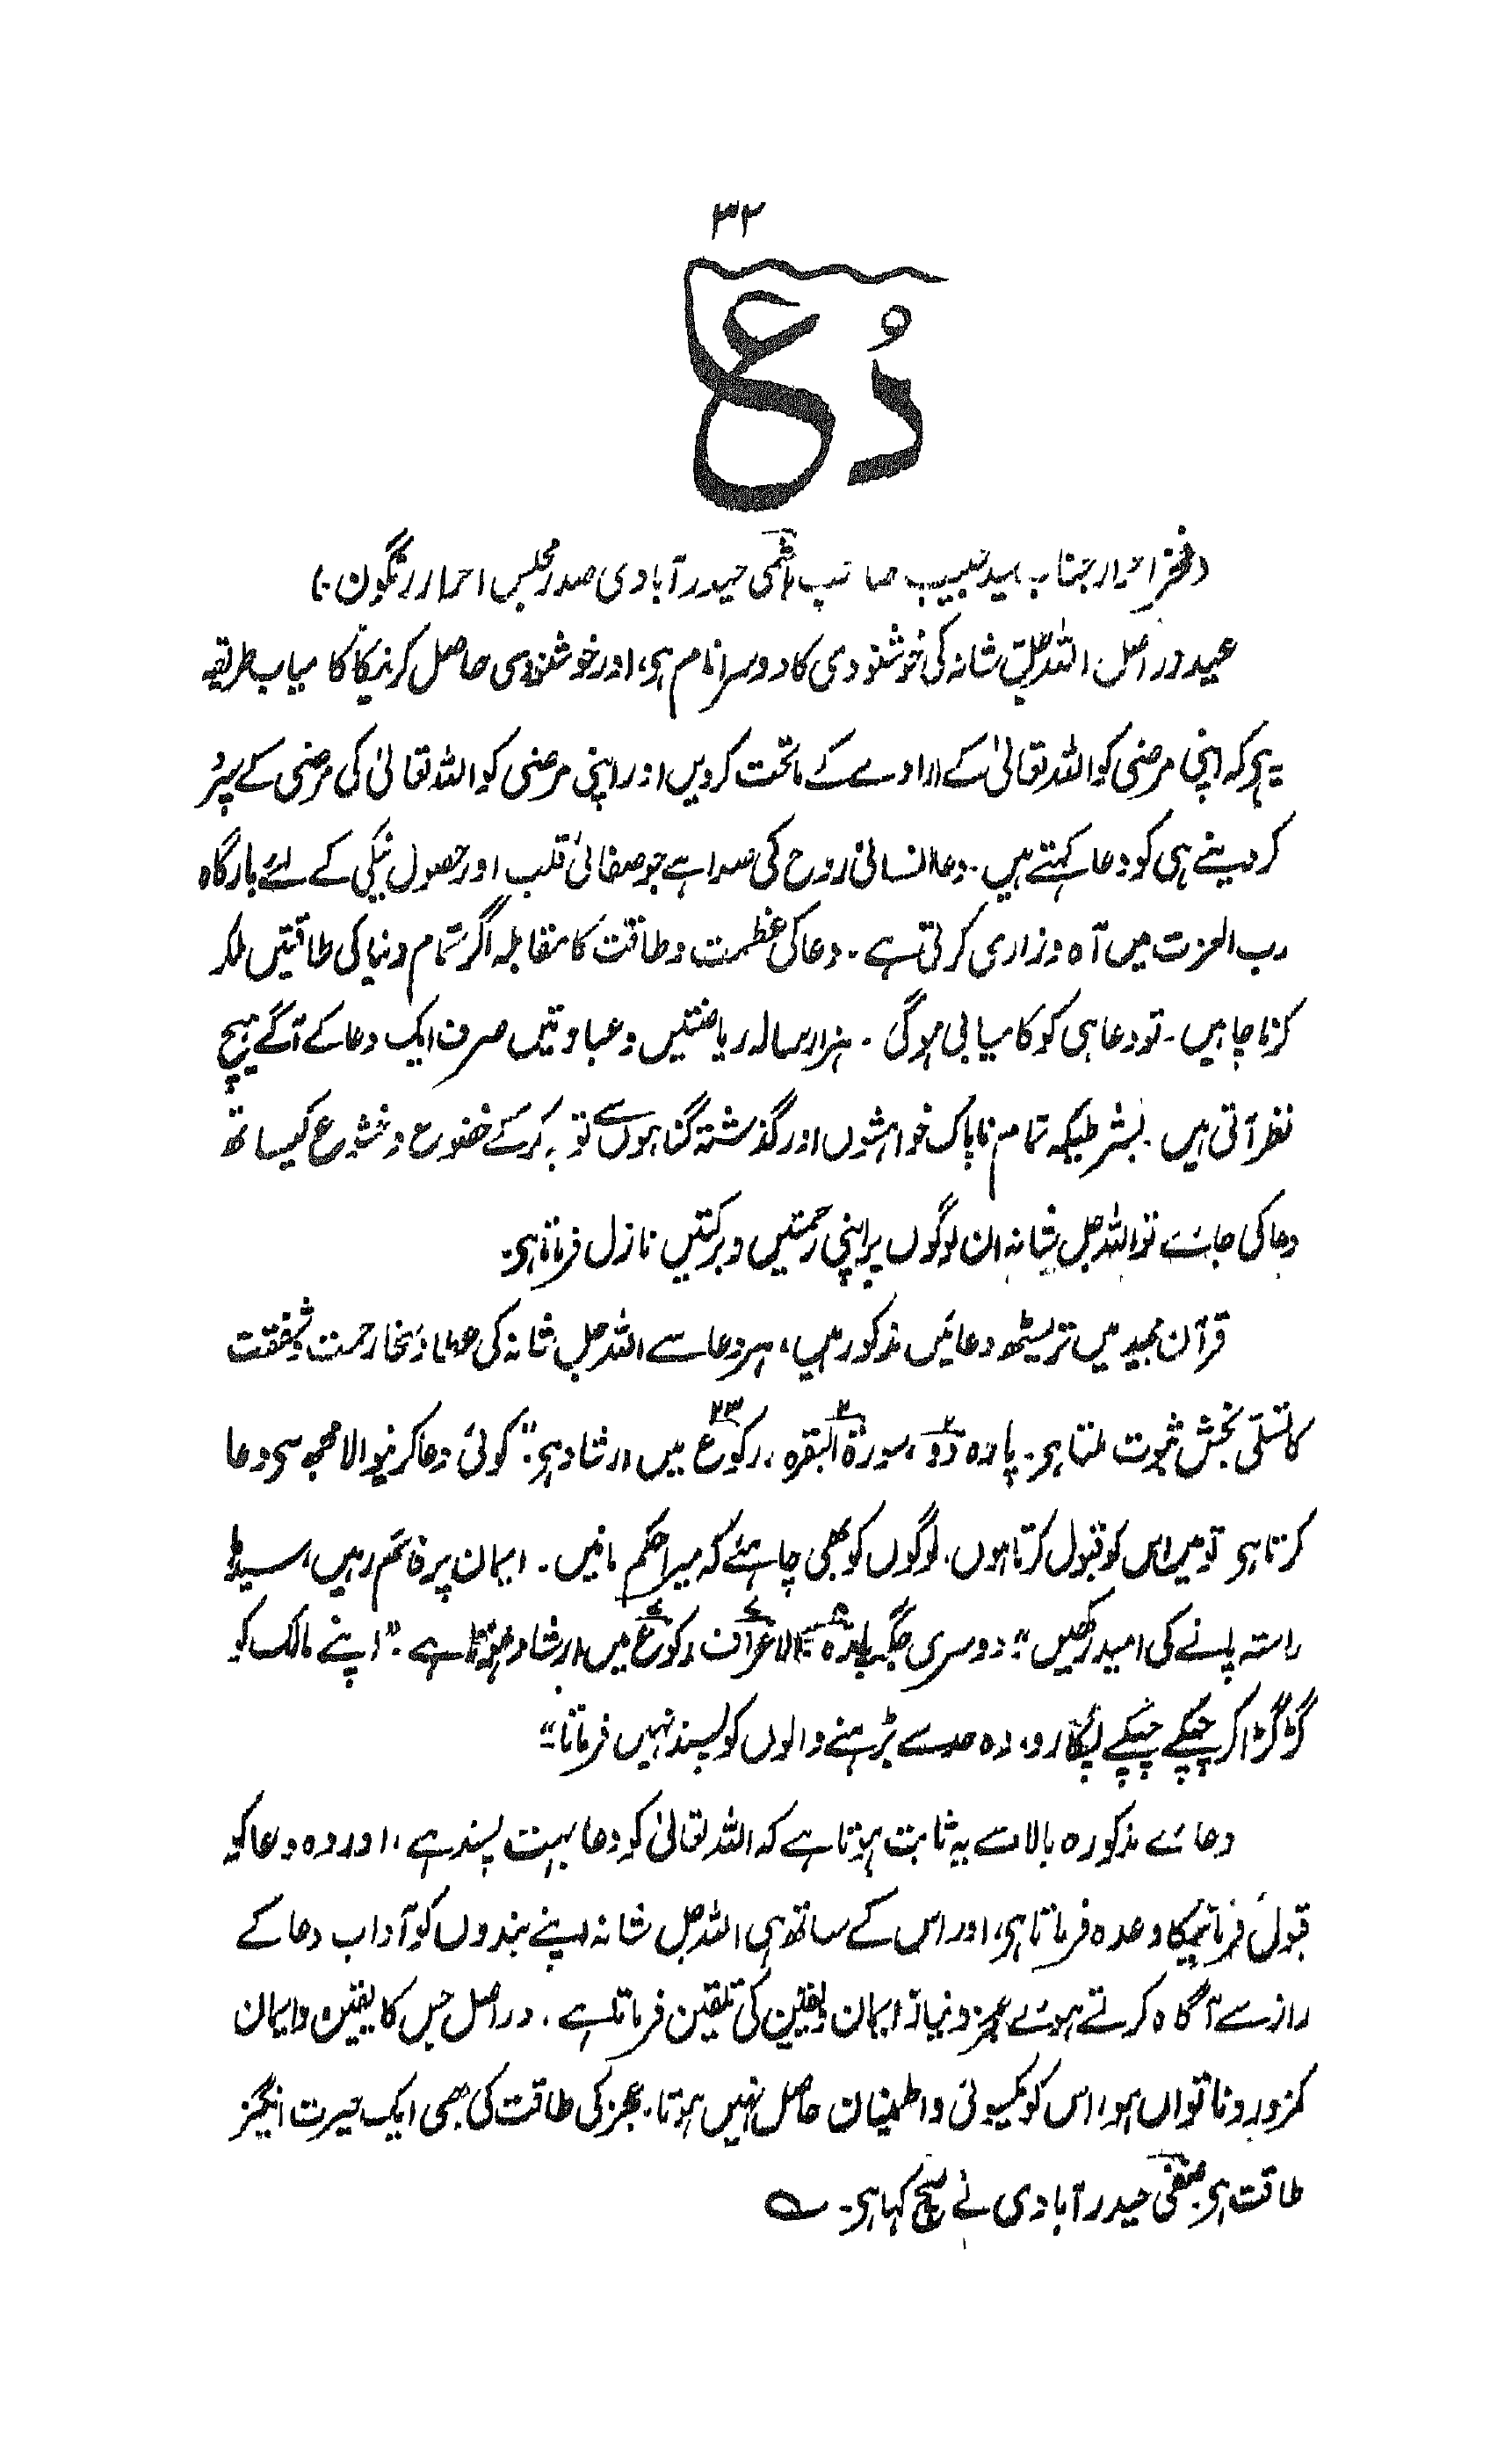 ۳۲
دُعا
(فخرِ احرار جناب سید حبیب صاحب ہاشمی حیدرآبادی صدر مجلس احرار رنگون)
عید دراصل اللہ جلّ شانہ کی خوشنودی کا دوسرا نام ہی، اور خوشنودی حاصل کرنیکا کامیاب طریقہ
یہ ہی کہ اپنی مرضی کو اللہ تعالیٰ کے ارادے کے ماتحت کردیں اور اپنی مرضی کو اللہ تعالیٰ کی مرضی کے سپرد
کردینے ہی کو دعا کہتے ہیں۔ دعا انسانی روح کی صدا ہے جو صفائی قلب اور حصول نیکی کے لئے بارگاہ
رب العزت میں آہ وزاری کرتی ہے۔ دعا کی عظمت و طاقت کا مقابلہ اگر تمام دنیا کی طاقتیں ملکر
کرنا چاہیں۔ تو دعا ہی کو کامیابی ہوگی۔ ہزار سالہ ریاضتیں و عبادتیں صرف ایک دعا کے آگے ہیچ
نظر آتی ہیں۔ بشرطیکہ تمام ناپاک خواہشوں اور گذشتہ گناہوں سے توبہ کرکے خضوع و خشوع کیساتھ
دعا کی جائے تو اللہ جل شانہ ان لوگوں پر اپنی رحمتیں و برکتیں نازل فرماتا ہی۔
قرآن مجید میں تریسٹھ دعائیں مذکور ہیں، ہر دعا سے اللہ جل شانہ کی عطا و سخا رحمت و شفقت
کا تسلّی بخش ثبوت ملتا ہی۔ پارہ دو ۲، سورۃ البقرہ ۲، رکوع ۲۳ میں ارشاد ہی: "کوئی دعا کرنیوالا مجھ سی دعا
کرتا ہی تو میں اس کو قبول کرتا ہوں۔ لوگوں کو بھی چاہئے کہ میرا حکم مانیں۔ ایمان پر قائم رہیں، سیدھا
راستہ پانے کی امید رکھیں"؛ دوسری جگہ پارہ ۸ الاعراف ۷ رکوع میں ارشاد ہوتا ہے۔ "اپنے مالک کو
گڑگڑا کر چپکے چپکے پکارو، وہ حد سے بڑھنے والوں کو پسند نہیں فرماتا"
دعائے مذکورہ بالا سے یہ ثابت ہوتا ہے کہ اللہ تعالیٰ کو دعا بہت پسند ہے، اور وہ دعا کو
قبول فرمانیکا وعدہ فرماتا ہی، اور اس کے ساتھ ہی اللہ جل شانہ اپنے بندوں کو آداب دعا کے
راز سے آگاہ کرتے ہوئے عجز و نیاز ایمان ویقین کی تلقین فرماتا ہے۔ دراصل جس کا یقین و ایمان
کمزور و ناتواں ہو، اس کو یکسوئی و اطمینان حاصل نہیں ہوتا۔ عجز کی طاقت کی بھی ایک حیرت انگیز
طاقت ہی۔ صفی حیدرآبادی نے سچ کہا ہی۔ ؎